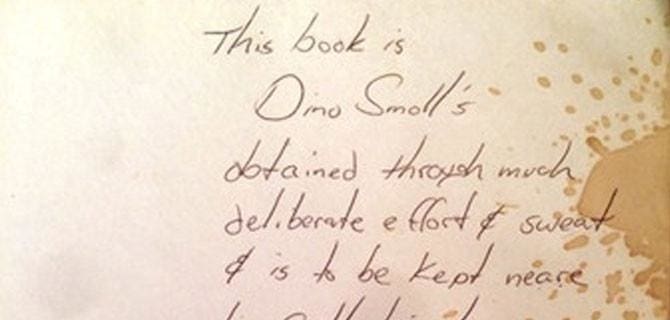 This book is
Dino Smoll's
obtained through much
deliberate effort & sweat
& is to be kept neare